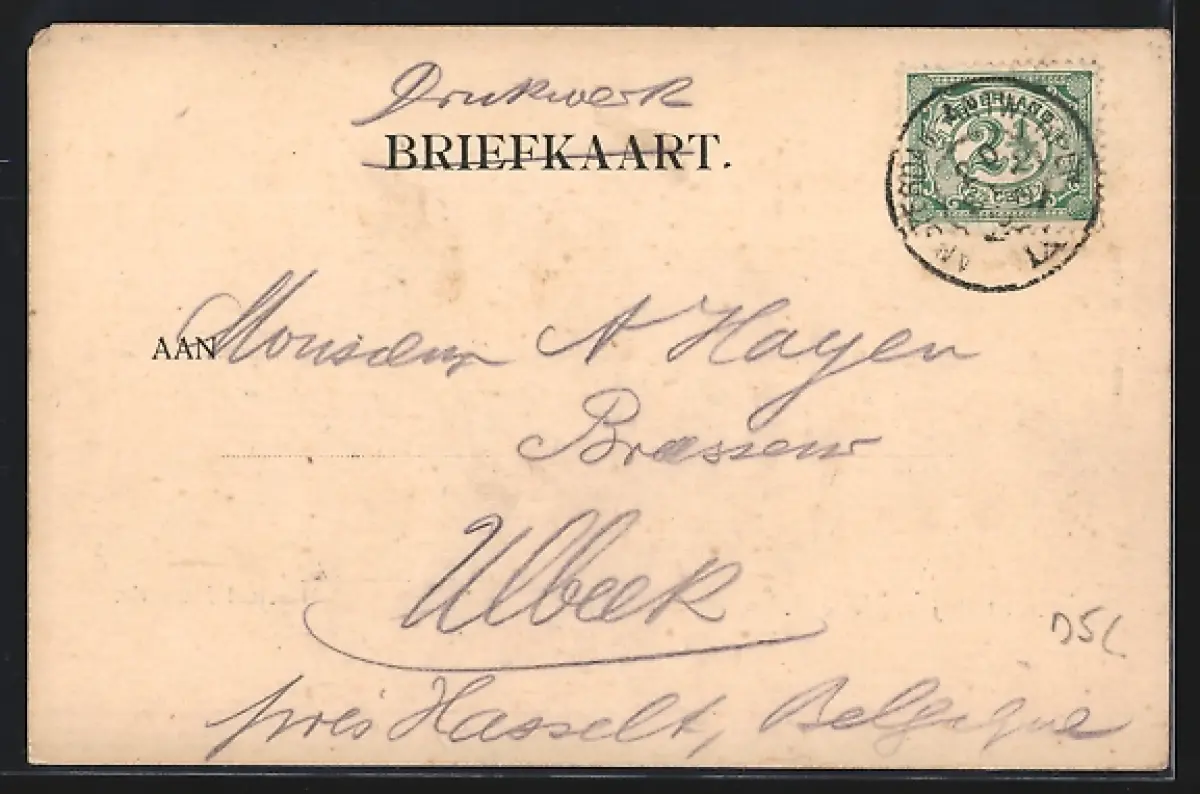 Drukwerk
BRIEFKAART.
NEDERLAND
2½
AMSTERDAM
AAN Monsieur A Hayen
Brasseur
Ulbeek
près Hasselt, Belgique